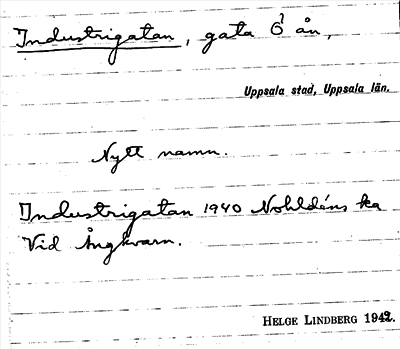 Industrigatan, gata Ö ån,
Uppsala stad, Uppsala län.
Nytt namn.
Industrigatan 1940 Nohldéns ka
Vid Ångkvarn.
HELGE LINDBERG 1942.